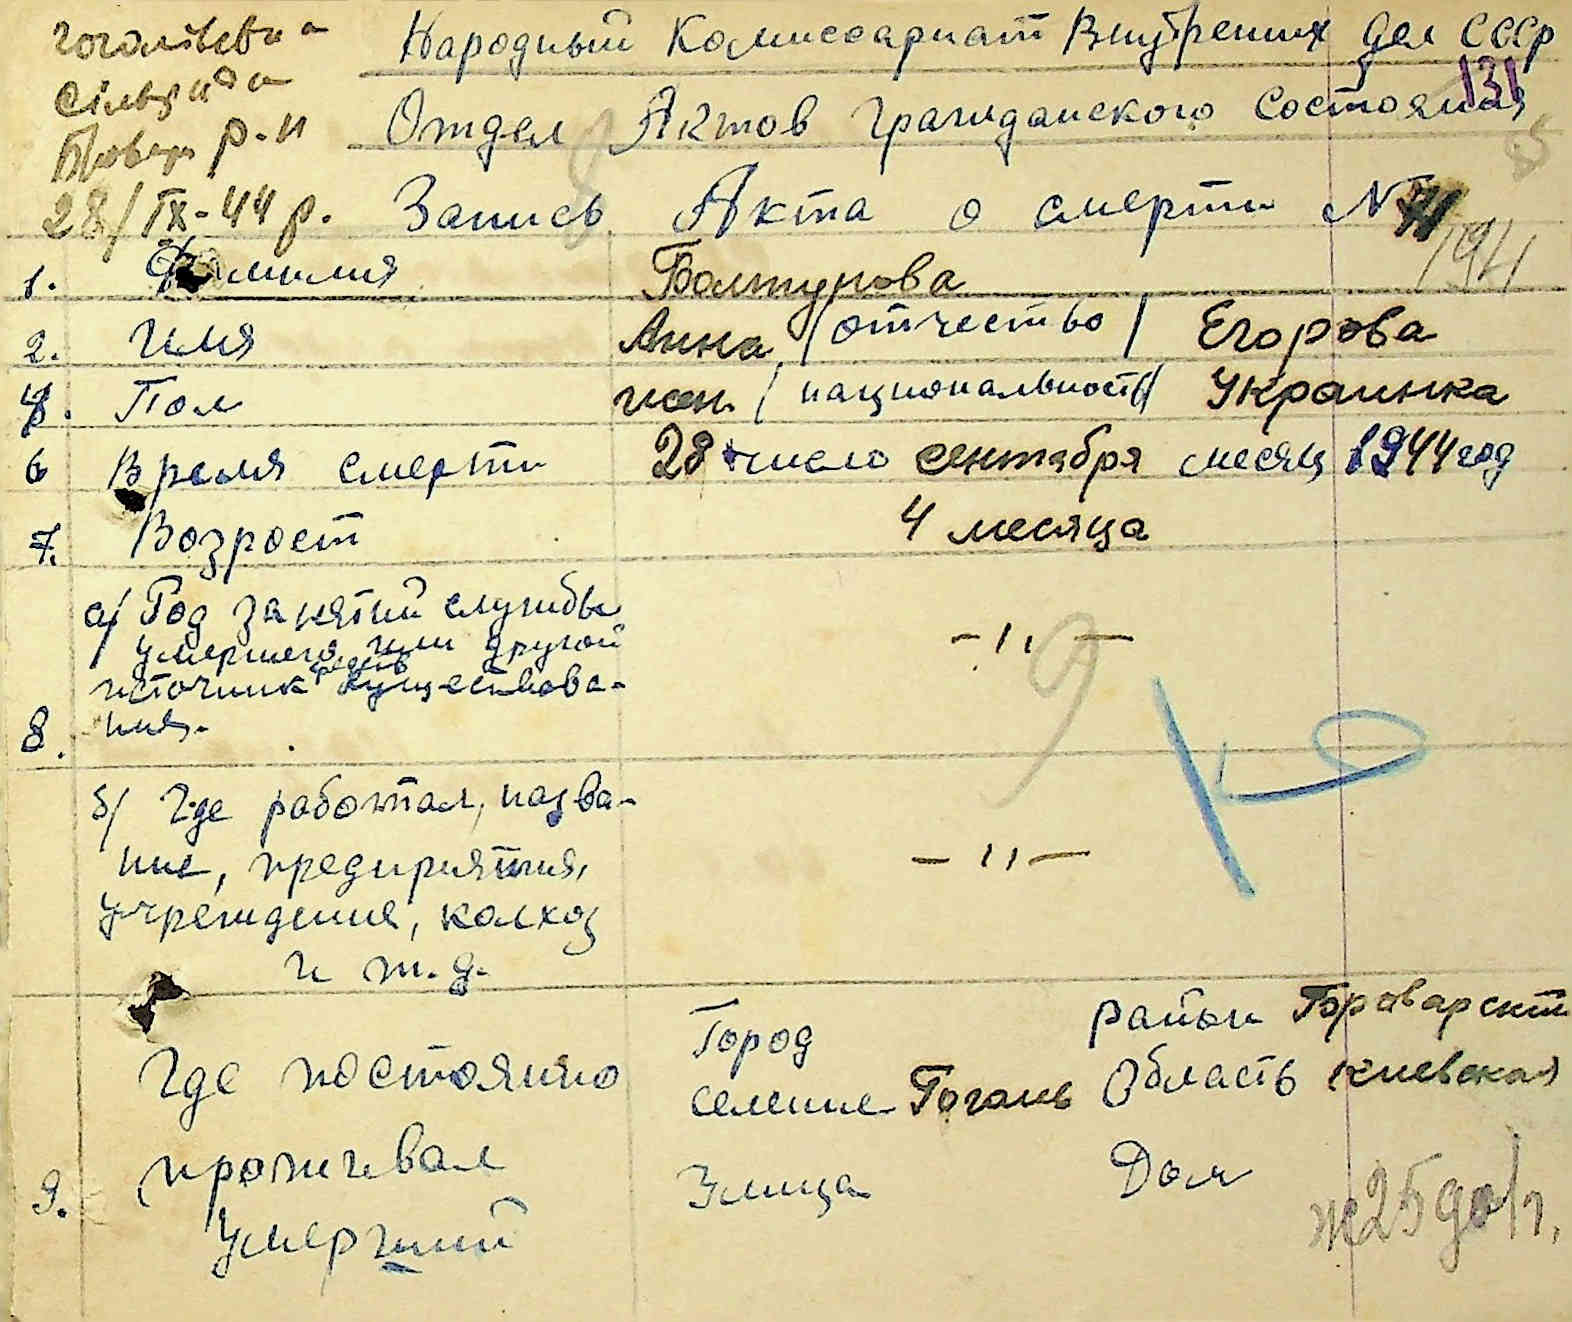 Гоголівська
сільрада
Бровар. р-н
28/IX-44 р.
Народный Комиссариат Внутренних Дел СССР
131
Отдел Актов Гражданского Состояния
Запись Акта о смерти №
194
1. Фамилия Болтунова
2. Имя Анна /отчество/ Егорова
Пол жен. /национальность/ Украинка
6 Время смерти 28 число сентября месяц 1944 год
7. Возрост 4 месяца
а/ Род занятий службы
умершего или другой
источник средств существова-
ния. -"-
8.
б/ Где работал, назва-
ние, предприятия,
учреждение, колхоз
и т.д. -"-
9. Где постоянно проживал умерший
Город район Броварский
селение Гоголев Область Киевская
Улица Дом
ж 25 до 1 г.